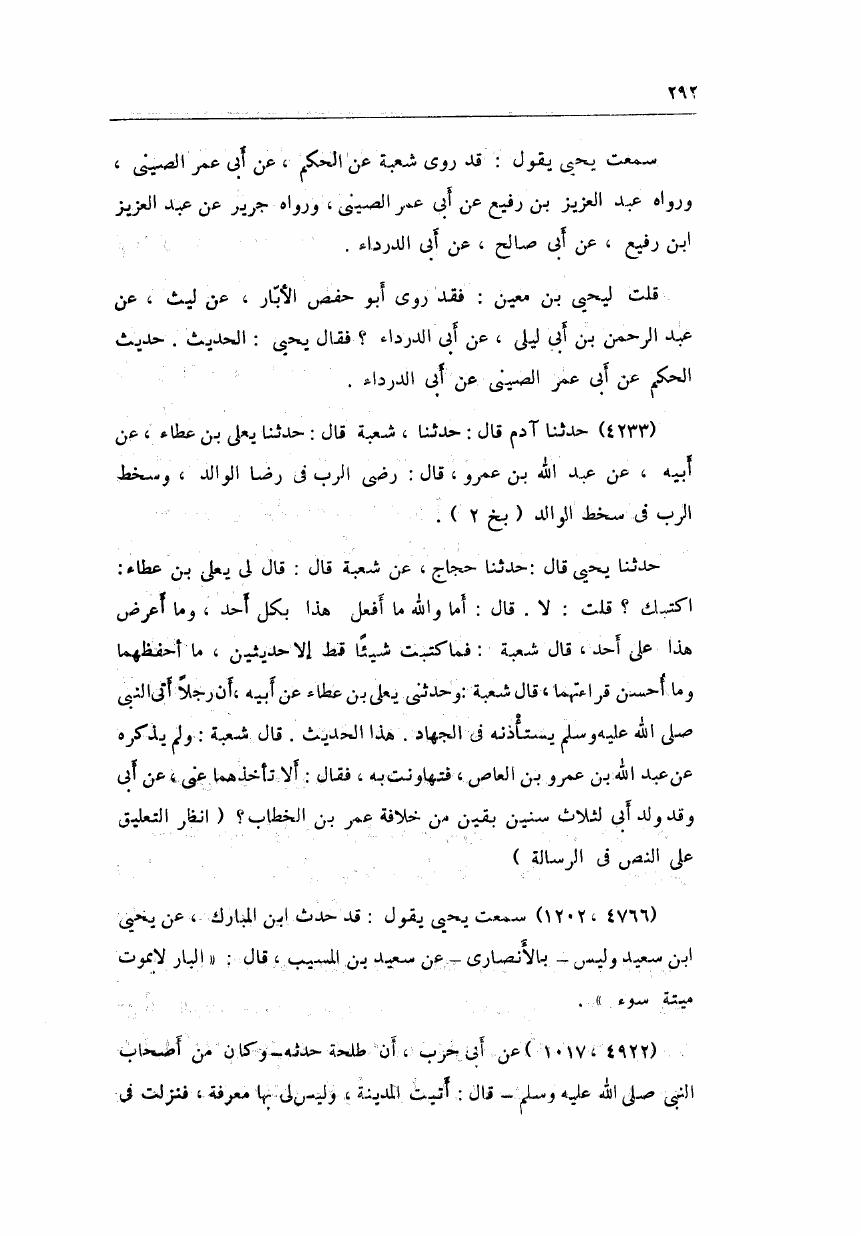 ٢٩٢
سمعت يحيى يقول : قد روى شعبة عن الحكم ، عن أبى عمر الصينى ،
ورواه عبد العزيز بن رفيع عن أبى عمر الصينى ، ورواه جرير عن عبد العزيز
ابن رفيع ، عن أبى صالح ، عن أبى الدرداء .
قلت ليحيى بن معين : فقد روى أبو حفص الأبّار ، عن ليث ، عن
عبد الرحمن بن أبى ليلى ، عن أبى الدرداء ؟ فقال يحيى : الحديث . حديث
الحكم عن أبى عمر الصينى عن أبى الدرداء .
(٤٢٣٣) حدثنا آدم قال : حدثنا ، شعبة قال : حدثنا يعلى بن عطاء ، عن
أبيه ، عن عبد الله بن عمرو ، قال : رضى الرب فى رضا الوالد ، وسخط
الرب فى سخط الوالد ( بخ ٢ ) .
حدثنا يحيى قال :حدثنا حجاج ، عن شعبة قال : قال لى يعلى بن عطاء:
اكتبك ؟ قلت : لا . قال : أما والله ما أفعل هذا بكل أحد ، وما أعرض
هذا على أحد ، قال شعبة : فما كتبت شيئًا قط إلا حديثين ، ما أحفظهما
وما أحسن قراءتهما ، قال شعبة :وحدثنى يعلى بن عطاء عن أبيه ،أن رجلاً أتى النبى
صلى الله عليه وسلم يستأذنه فى الجهاد . هذا الحديث . قال شعبة : ولم يذكره
عن عبد الله بن عمرو بن العاص ، فتهاونت به ، فقال : ألا تأخذهما عنى ، عن أبى
وقد ولد أبى لثلاث سنين بقين من خلافة عمر بن الخطاب ؟ ( انظر التعليق
على النص فى الرسالة )
(٤٧٦٦ ، ١٢٠٢) سمعت يحيى يقول : قد حدث ابن المبارك ، عن يحيى
ابن سعيد وليس – بالأنصارى – عن سعيد بن المسيب ، قال : « البار لايموت
ميتة سوء » .
(٤٩٢٢ ، ١٠١٧ ) عن أبى حرب ، أن طلحة حدثه – وكان من أصحاب
النبى صلى الله عليه وسلم – قال : أتيت المدينة ، وليس لى بها معرفة ، فنزلت فى